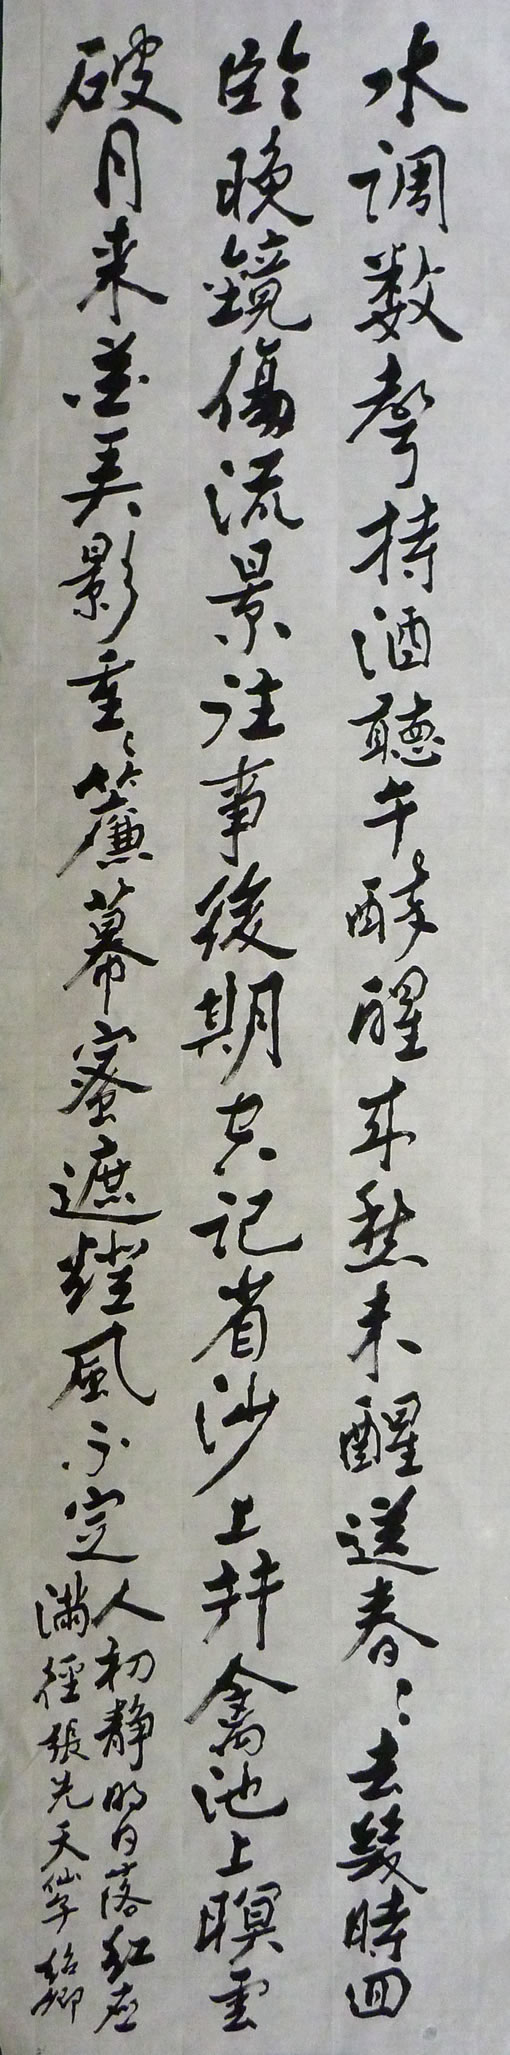 水調数聲持酒聽午醉醒来愁未醒送春〻去幾時回
臨晚鏡傷流景往事後期空記省沙上并禽池上瞑雲
破月来花弄影重〻簾幕蜜遮燈風不定
人初静明日落紅應
滿徑張先天仙子